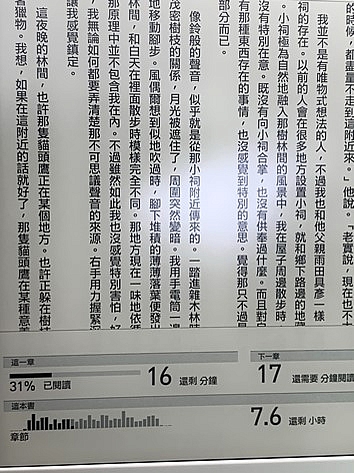 的時候，都盡量不走到這附近來。」他說。「老實說，現在也不太
我並不是有唯物式想法的人，不過我也和他父親雨田具彥一樣
祠的存在。以前的人會在很多地方設置小祠，就和鄉下路邊的地藏
。小祠極為自然地融入那樹林間的風景中，我在屋子周邊散步時
有沒特別在意。既沒有向小祠合掌，也沒有供奉過什麼。而且對自
有那種東西存在的事情，也沒感覺到特別的意思。覺得那只不過是
部分而已。
像鈴般的聲音，似乎就是從那小祠附近傳來的。一踏進雜木林時
茂密樹枝的關係，月光被遮住了，周圍突然變暗。我用手電筒一邊
地移動腳步。風偶爾想到似地吹過時，腳下堆積的薄薄落葉便發出
林間，和白天在裡面散步時模樣完全不同。那地方現在一味地依循
那原理中並不包含我在內。不過雖然如此我也沒感覺特別害怕，好
，我無論如何都要弄清楚那不可思議聲音的來源。右手用力握緊沉
讓我感覺鎮定。
這夜晚的林間，也許那隻貓頭鷹正在某個地方。也許正躲在樹枝
者獵物。我想，如果在這附近的話就好了，那隻貓頭鷹在某種意義
這一章
31% 已閱讀
16 還剩 分鐘
下一章
17 還需要 分鐘閱讀
這本書
章節
7.6 還剩 小時